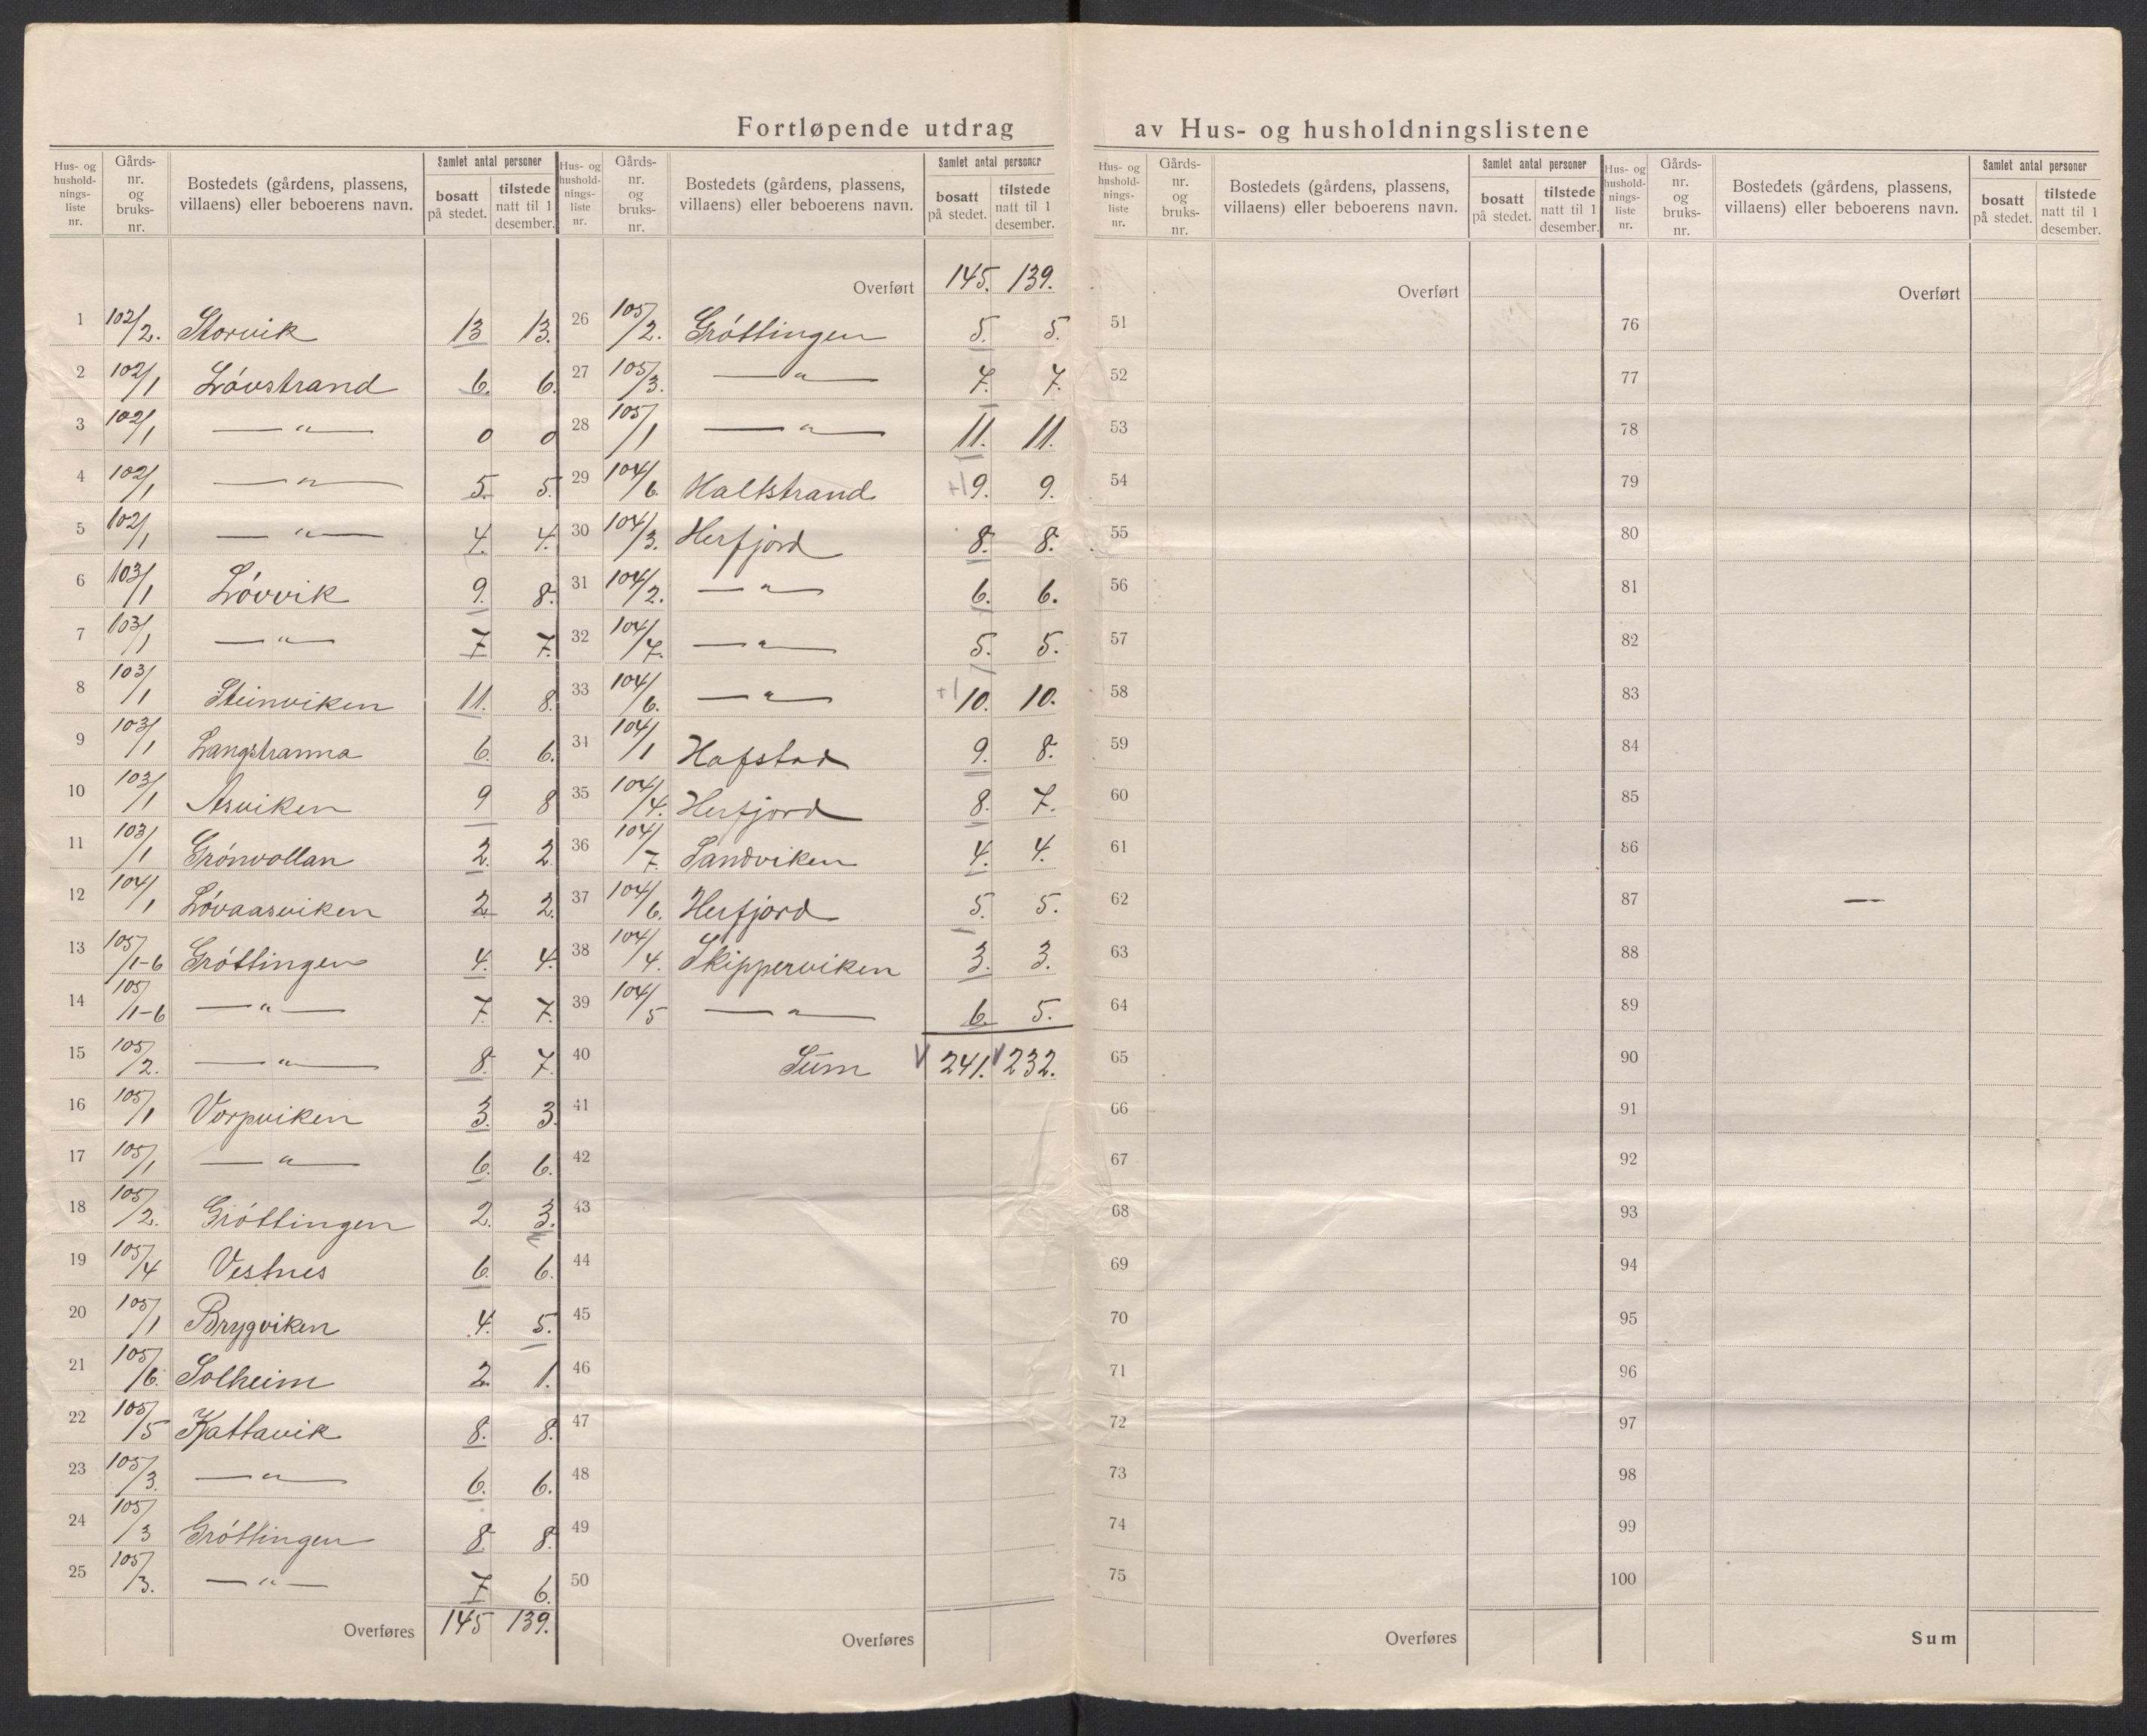 Fortløpende utdrag av Hus- og husholdningslistene
Hus- og hushold- nings- liste nr. | Gårds- nr. og bruks- nr. | Bostedets (gårdens, plassens, villaens) eller beboerens navn. | Samlet antal personer | bosatt på stedet. | tilstede natt til 1 desember.
1 102/2. Storvik 13 13.
2 102/1 Lóvstrand 6. 6.
3 102/1 — „ — 0 0
4 102/1 — „ — 5. 5.
5 102/1 — „ — 4. 4.
6 103/1 Lóvvik 9. 8.
7 103/1 — „ — 7 7.
8 103/1 Steinviken 11. 8.
9 103/1 Langstranna 6. 6.
10 103/1 Asviken 9 8
11 103/1 Grónvollan 2. 2.
12 104/1 Lóvaasviken 2 2.
13 105/1-6 Gróttingen 4. 4.
14 105/1-6 — „ — 7. 7.
15 105/2. — „ — 8. 7.
16 105/1 Vorpviken 3. 3.
17 105/1 — „ — 6. 6.
18 105/2. Gróttingen 2. 3.
19 105/4 Vestnes 6. 6.
20 105/1 Brygviken 4. 5.
21 105/6. Solheim 2 1.
22 105/5 Kattavik 8. 8.
23 105/3. — „ — 6. 6.
24 105/3 Gróttingen 8. 8.
25 105/3. — „ — 7 6.
Overføres 145 139.
Hus- og hushold- nings- liste nr. | Gårds- nr. og bruks- nr. | Bostedets (gårdens, plassens, villaens) eller beboerens navn. | Samlet antal personer | bosatt på stedet. | tilstede natt til 1 desember.
Overført 145. 139.
26 105/2. Gróttingen 5. 5.
27 105/3. — „ — 7. 7.
28 105/1 — „ — 11. 11.
29 104/6. Haltstrand +1 9. 9.
30 104/3. Herfjord 8. 8.
31 104/2. — „ — 6. 6.
32 104/7. — „ — 5. 5.
33 104/6. — „ — +1 10. 10.
34 104/1 Hafstad 9. 8.
35 104/4. Herfjord 8. 7.
36 104/7. Sandviken 4. 4.
37 104/6. Herfjord 5. 5.
38 104/4. Skipperviken 3. 3.
39 104/5 — „ — 6. 5.
40 Sum 241. 232.
41
42
43
44
45
46
47
48
49
50
Overføres
Hus- og hushold- nings- liste nr. | Gårds- nr. og bruks- nr. | Bostedets (gårdens, plassens, villaens) eller beboerens navn. | Samlet antal personer | bosatt på stedet. | tilstede natt til 1 desember.
Overført
51
52
53
54
55
56
57
58
59
60
61
62
63
64
65
66
67
68
69
70
71
72
73
74
75
Overføres
Hus- og hushold- nings- liste nr. | Gårds- nr. og bruks- nr. | Bostedets (gårdens, plassens, villaens) eller beboerens navn. | Samlet antal personer | bosatt på stedet. | tilstede natt til 1 desember.
Overført
76
77
78
79
80
81
82
83
84
85
86
87 —
88
89
90
91
92
93
94
95
96
97
98
99
100
Sum